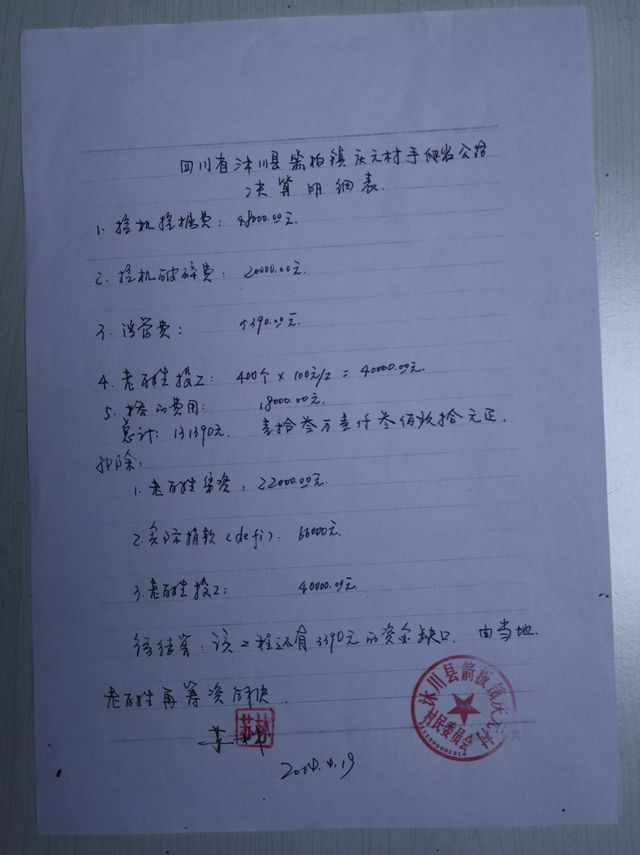 四川省沐川县箭板镇庆元村手爬岩公路
决算明细表
1. 挖机挖掘费: 48000.00元.
2. 挖机破碎费: 20000.00元.
3. 涵管费: 5390.00元.
4. 老百姓投工: 400个 × 100元/工 = 40000.00元.
5. 的费用: 18000.00元.
总计: 131390元. 壹拾叁万壹仟叁佰玖拾元正.
扣除:
1. 老百姓集资: 22000.00元.
2. 实际捐款 (defi). 66000元.
3. 老百姓投工: 40000.00元.
结算: 该工程还有3390元的资金缺口. 由当地
老百姓再筹资解决.
沐川县箭板镇庆元村
村民委员会